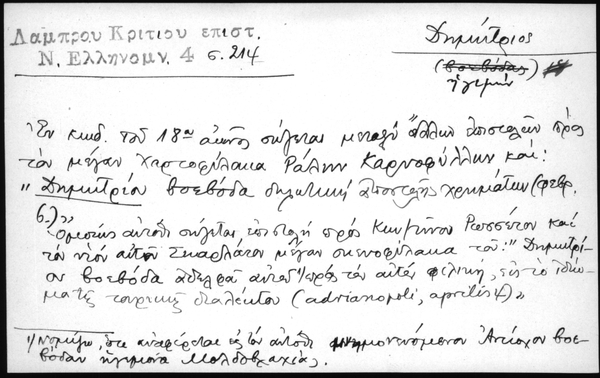 Λαμπρου Κριτιου επιστ.
Ν. Ελληνομν. 4 σ. 214
Δημήτριος
(βοεβόδας)
ἡγεμὼν
Ἐν κωδ. τοῦ 18ου αἰῶνος σώζεται μεταξὺ ἄλλων ἐπιστολῶν πρὸς
τὸν μέγαν χαρτοφύλακα Ράλην Καρυοφύλλην καὶ:
"Δημητρίου βοεβόδα δηλωτικὴ ἀποστολῆς χρημάτων (φεβρ.
6.)"
Ὁμοίως αὐτόθι σώζεται ἐπιστολὴ πρὸς Ρωσσέτον καὶ
τὸν υἱὸν αὐτοῦ Σκαρλάτον μέγαν σκευοφύλακα τοῦ: "Δημητρί-
ου βοεβόδα ἀδελφοῦ αὐτοῦ 1) πρὸς τὸν αὐτὸν φιλική, εἰς τὸ ἰδίω-
μα τῆς τουρκικῆς διαλέκτου (adrianopoli, aprilis 4)"
1) Νομίζω, ὅτι ἀναφέρεται εἰς τὸν αὐτόθι μνημονευόμενον Ἀντίοχον βοε-
βόδαν ἡγεμόνα Μολδοβλαχίας.